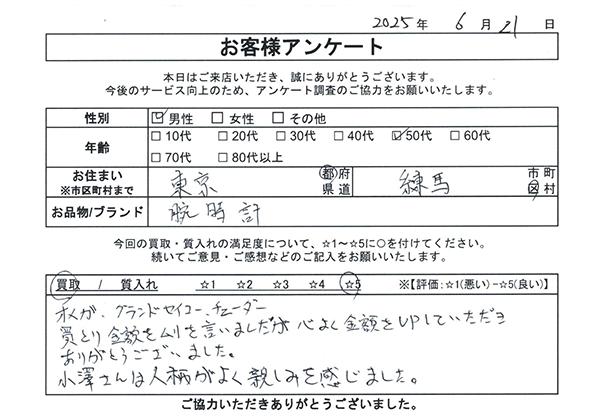 2025年 6月21日
お客様アンケート
本日はご来店いただき、誠にありがとうございます。
今後のサービス向上のため、アンケート調査のご協力をお願いいたします。
性別 ☑男性 □女性 □その他
年齢 □10代 □20代 □30代 □40代 ☑50代 □60代
□70代 □80代以上
お住まい ※市区町村まで 東京 都府県道 練馬 市町区村
お品物/ブランド 腕時計
今回の買取・質入れの満足度について、☆1～☆5に○を付けてください。
続いてご意見・ご感想などのご記入をお願いいたします。
買取 / 質入れ ☆1 ☆2 ☆3 ☆4 ☆5 ※【評価:☆1(悪い)-☆5(良い)】
オメガ、グランドセイコー、チューダー
買とり金額をムリを言いましたが 心よく金額をUPしていただき
ありがとうございました。
小澤さんは人柄がよく親しみを感じました。
ご協力いただきありがとうございました。